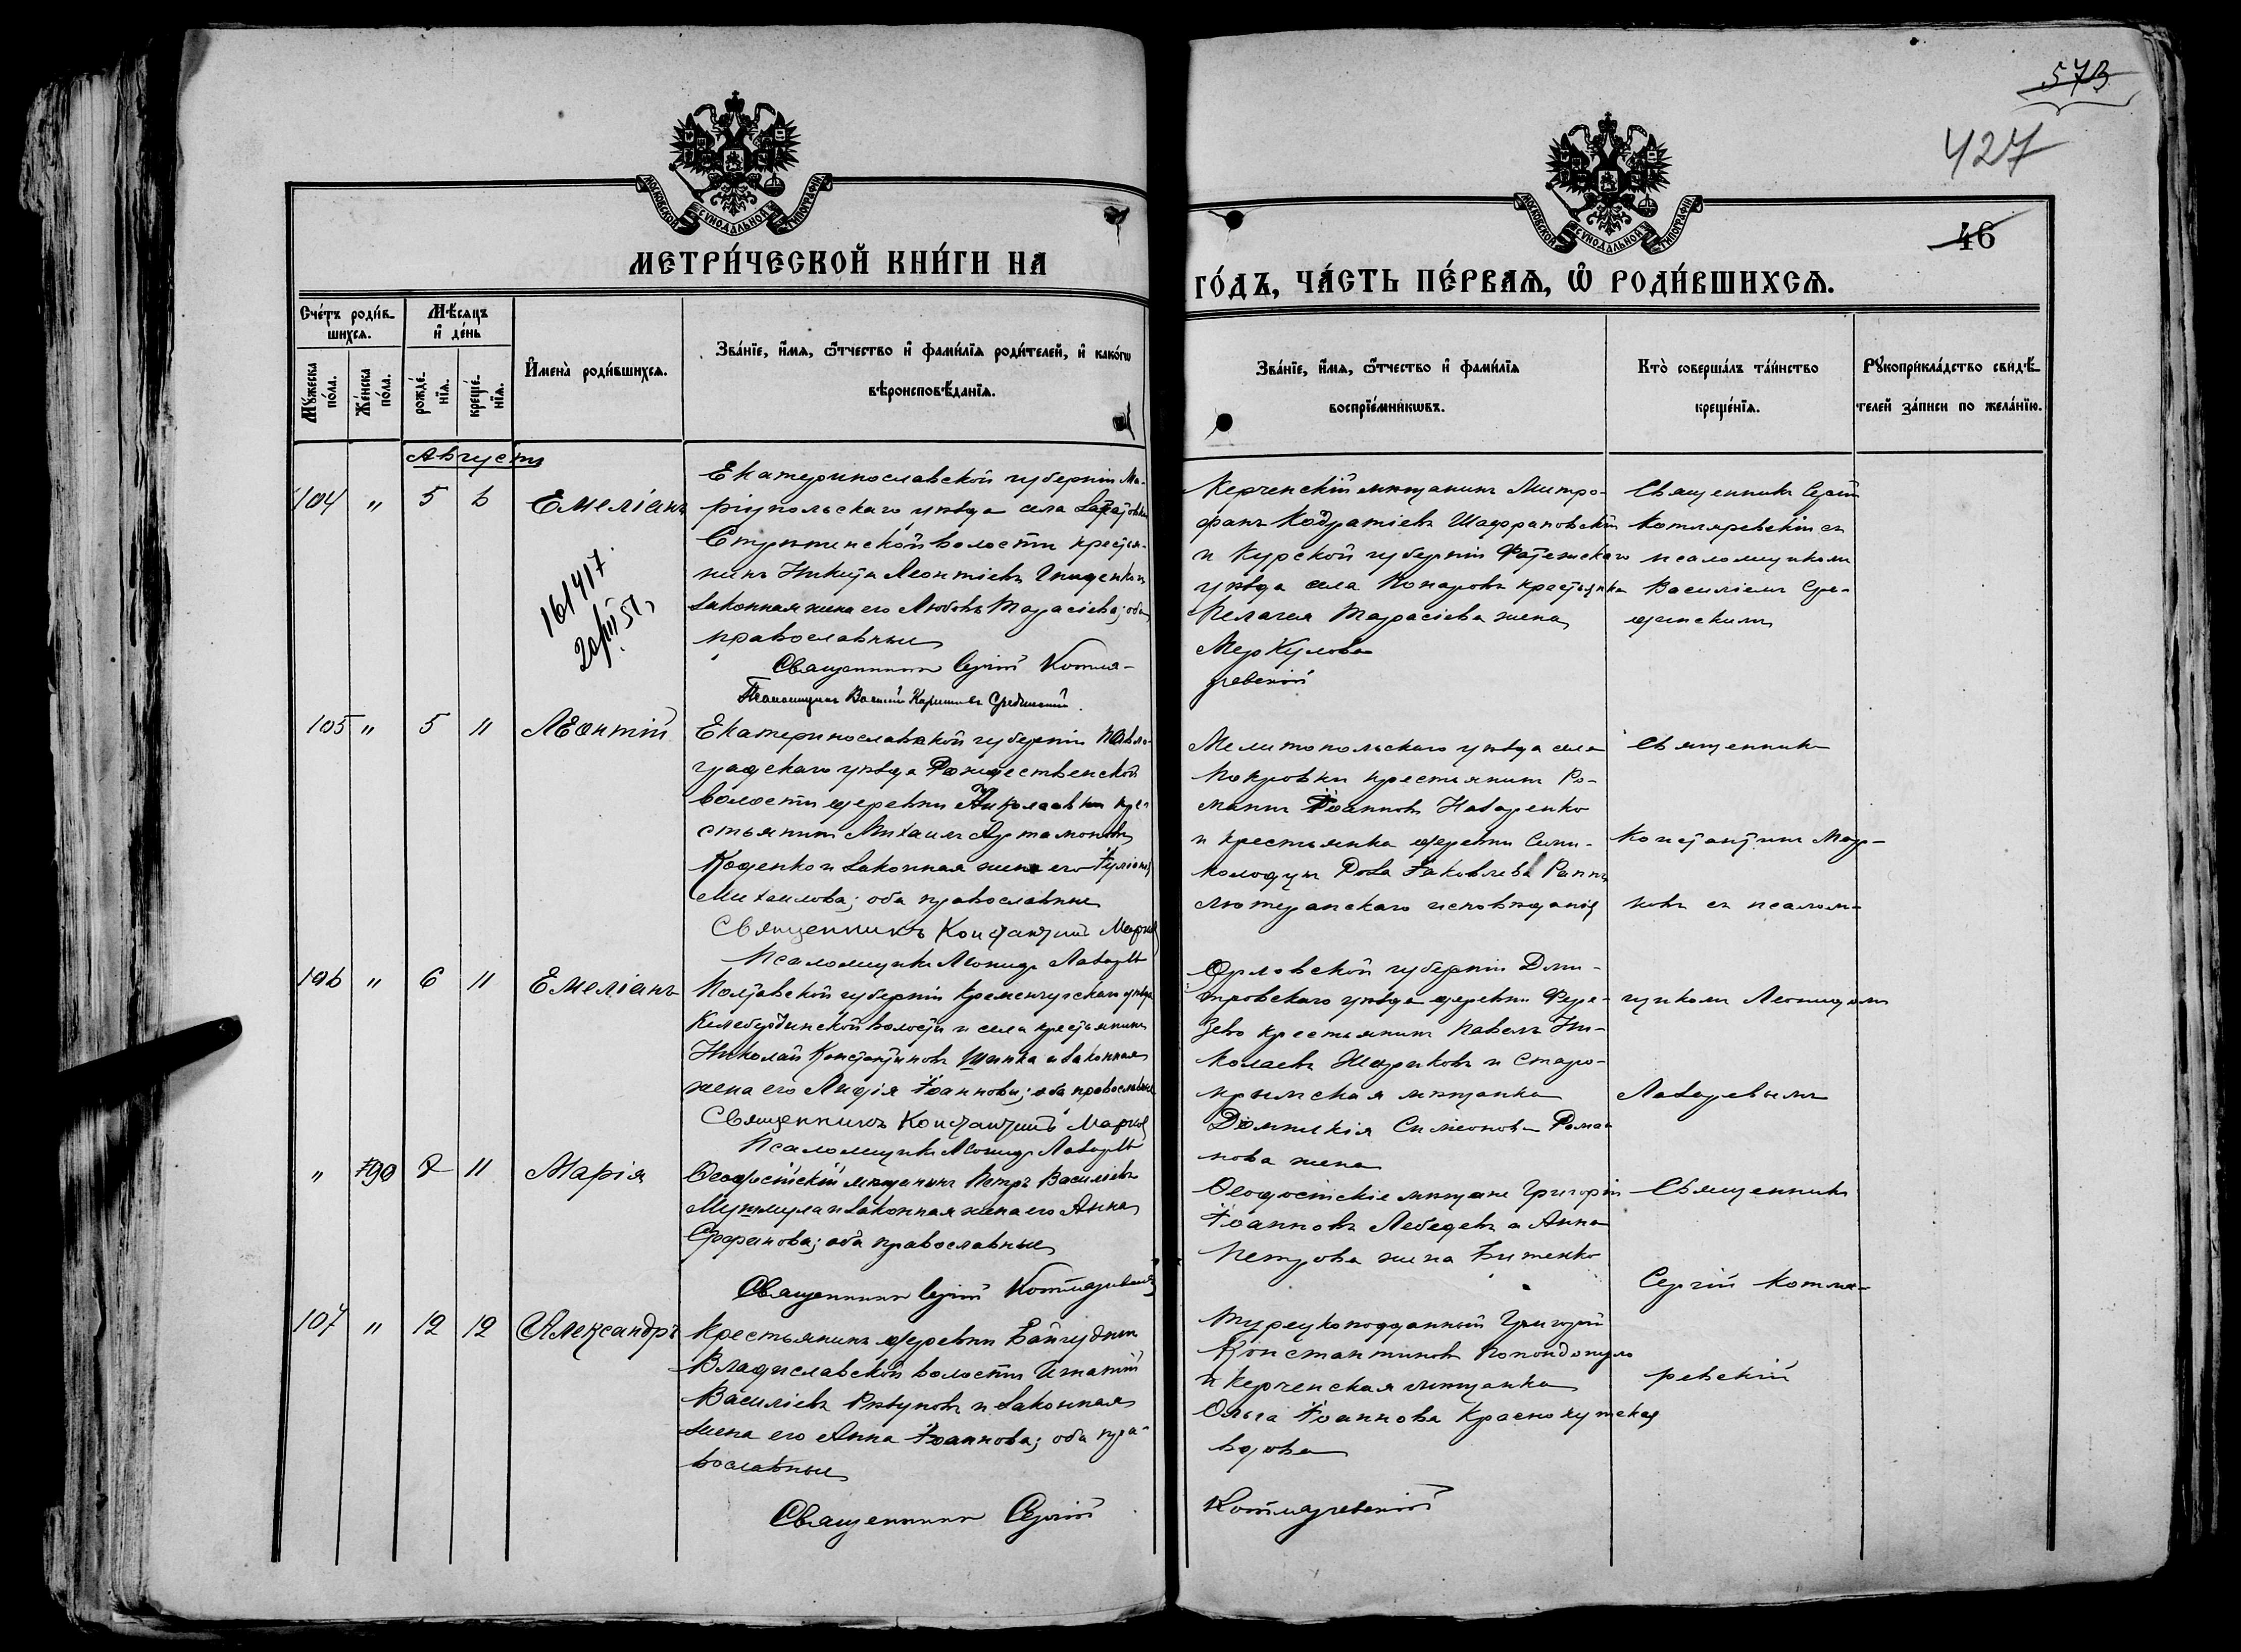 573
427
46
МОСКОВСКОЙ СѴНОДАЛЬНОЙ ТИПОГРАФІИ
МОСКОВСКОЙ СѴНОДАЛЬНОЙ ТИПОГРАФІИ
МЕТРИ́ЧЕСКОЙ КНИ́ГИ НА
ГО́ДЪ, ЧА́СТЬ ПЕ́РВАѦ, Ѡ҆ РОДИ́ВШИХСѦ.
Сче́тъ роди́в-
шихсѧ.
Мꙋ́жеска по́ла.
Же́нска по́ла.
Мѣ́сѧцъ
и҆ де́нь
рожде́-
нїѧ.
креще́-
нїѧ.
И҆мена̀ роди́вшихсѧ.
Зва́нїе, и҆́мѧ, ѻ҆́тчество и҆ фами́лїѧ роди́телей, и҆ како́гѡ
вѣроисповѣ́данїѧ.
Зва́нїе, и҆́мѧ, ѻ҆́тчество и҆ фами́лїѧ
воспрїе́мникѡвъ.
Кто̀ соверша́лъ та́инство
креще́нїѧ.
Рꙋкоприкла́дство свидѣ́-
телей за́писи по жела́нїю.
Августъ
104 " 5 6 Емеліанъ
161417
20/III 51
Екатеринославской губерніи Ма-
ріупольскаго уѣзда села
волости крестья-
нинъ Никита Леонтіевъ и
законная жена его Любовь Тарасіева; оба
православные
Священникъ Сергій Котля-
ревскій
Псаломщикъ Василій Срединскій
Керченскій мѣщанинъ Митро-
фанъ Кодратіевъ Шафрановскій
и Курской губерніи Фатежскаго
уѣзда села крестьянка
Пелагея Тарасіева жена
Меркулова
Священникъ Сергій
Котляревскій съ
псаломщикомъ
Василіемъ Сре-
динскимъ
105 " 5 11 Леонтій
Екатеринославской губерніи Павло-
градскаго уѣзда Рождественской
волости деревни Николаевки кре-
стьянинъ Михаилъ Артамоновъ
Коденко и законная жена его Іуліанія
Михаилова; оба православные
Священникъ Константинъ Марковъ
Псаломщикъ Леонидъ Лазаревъ
Мелитопольскаго уѣзда села
Покровки крестьянинъ Ро-
манъ Іоанновъ Назаренко
и крестьянка деревни
Роза Іаковлева
лютеранскаго исповѣданія
Священникъ
Константинъ Мар-
ковъ съ псалом-
щикомъ Леонидомъ
Лазаревымъ
106 " 6 11 Емеліанъ
Полтавской губерніи Кременчугскаго уѣзда
Келебердинской волости и села крестьянинъ
Николай Константиновъ Шапка и законная
жена его Лидія Іоаннова; оба православные
Священникъ Константинъ Марковъ
Псаломщикъ Леонидъ Лазаревъ
Орловской губерніи Дми-
тровскаго уѣзда деревни
крестьянинъ Павелъ Ни-
колаевъ и Старо-
крымская мѣщанка
Домникія Симеонова Рома-
нова жена
" 90 7 11 Марія
Ѳеодосійскій мѣщанинъ Петръ Василіевъ
Мушмула и законная жена его Анна
оба православные
Священникъ Сергій Котляревскій
Ѳеодосійскіе мѣщане Григорій
Іоанновъ Лебедевъ и Анна
Петрова жена
Священникъ
Сергій Котля-
ревскій
107 " 12 12 Александръ
Крестьянинъ деревни
Владиславской волости Игнатій
Василіевъ и законная
жена его Анна Іоаннова; оба пра-
вославные
Священникъ Сергій
Котляревскій
Турецкоподданный Григорій
Константиновъ Попондопуло
и Керченская мѣщанка
Ольга Іоаннова Краснокутская
вдова